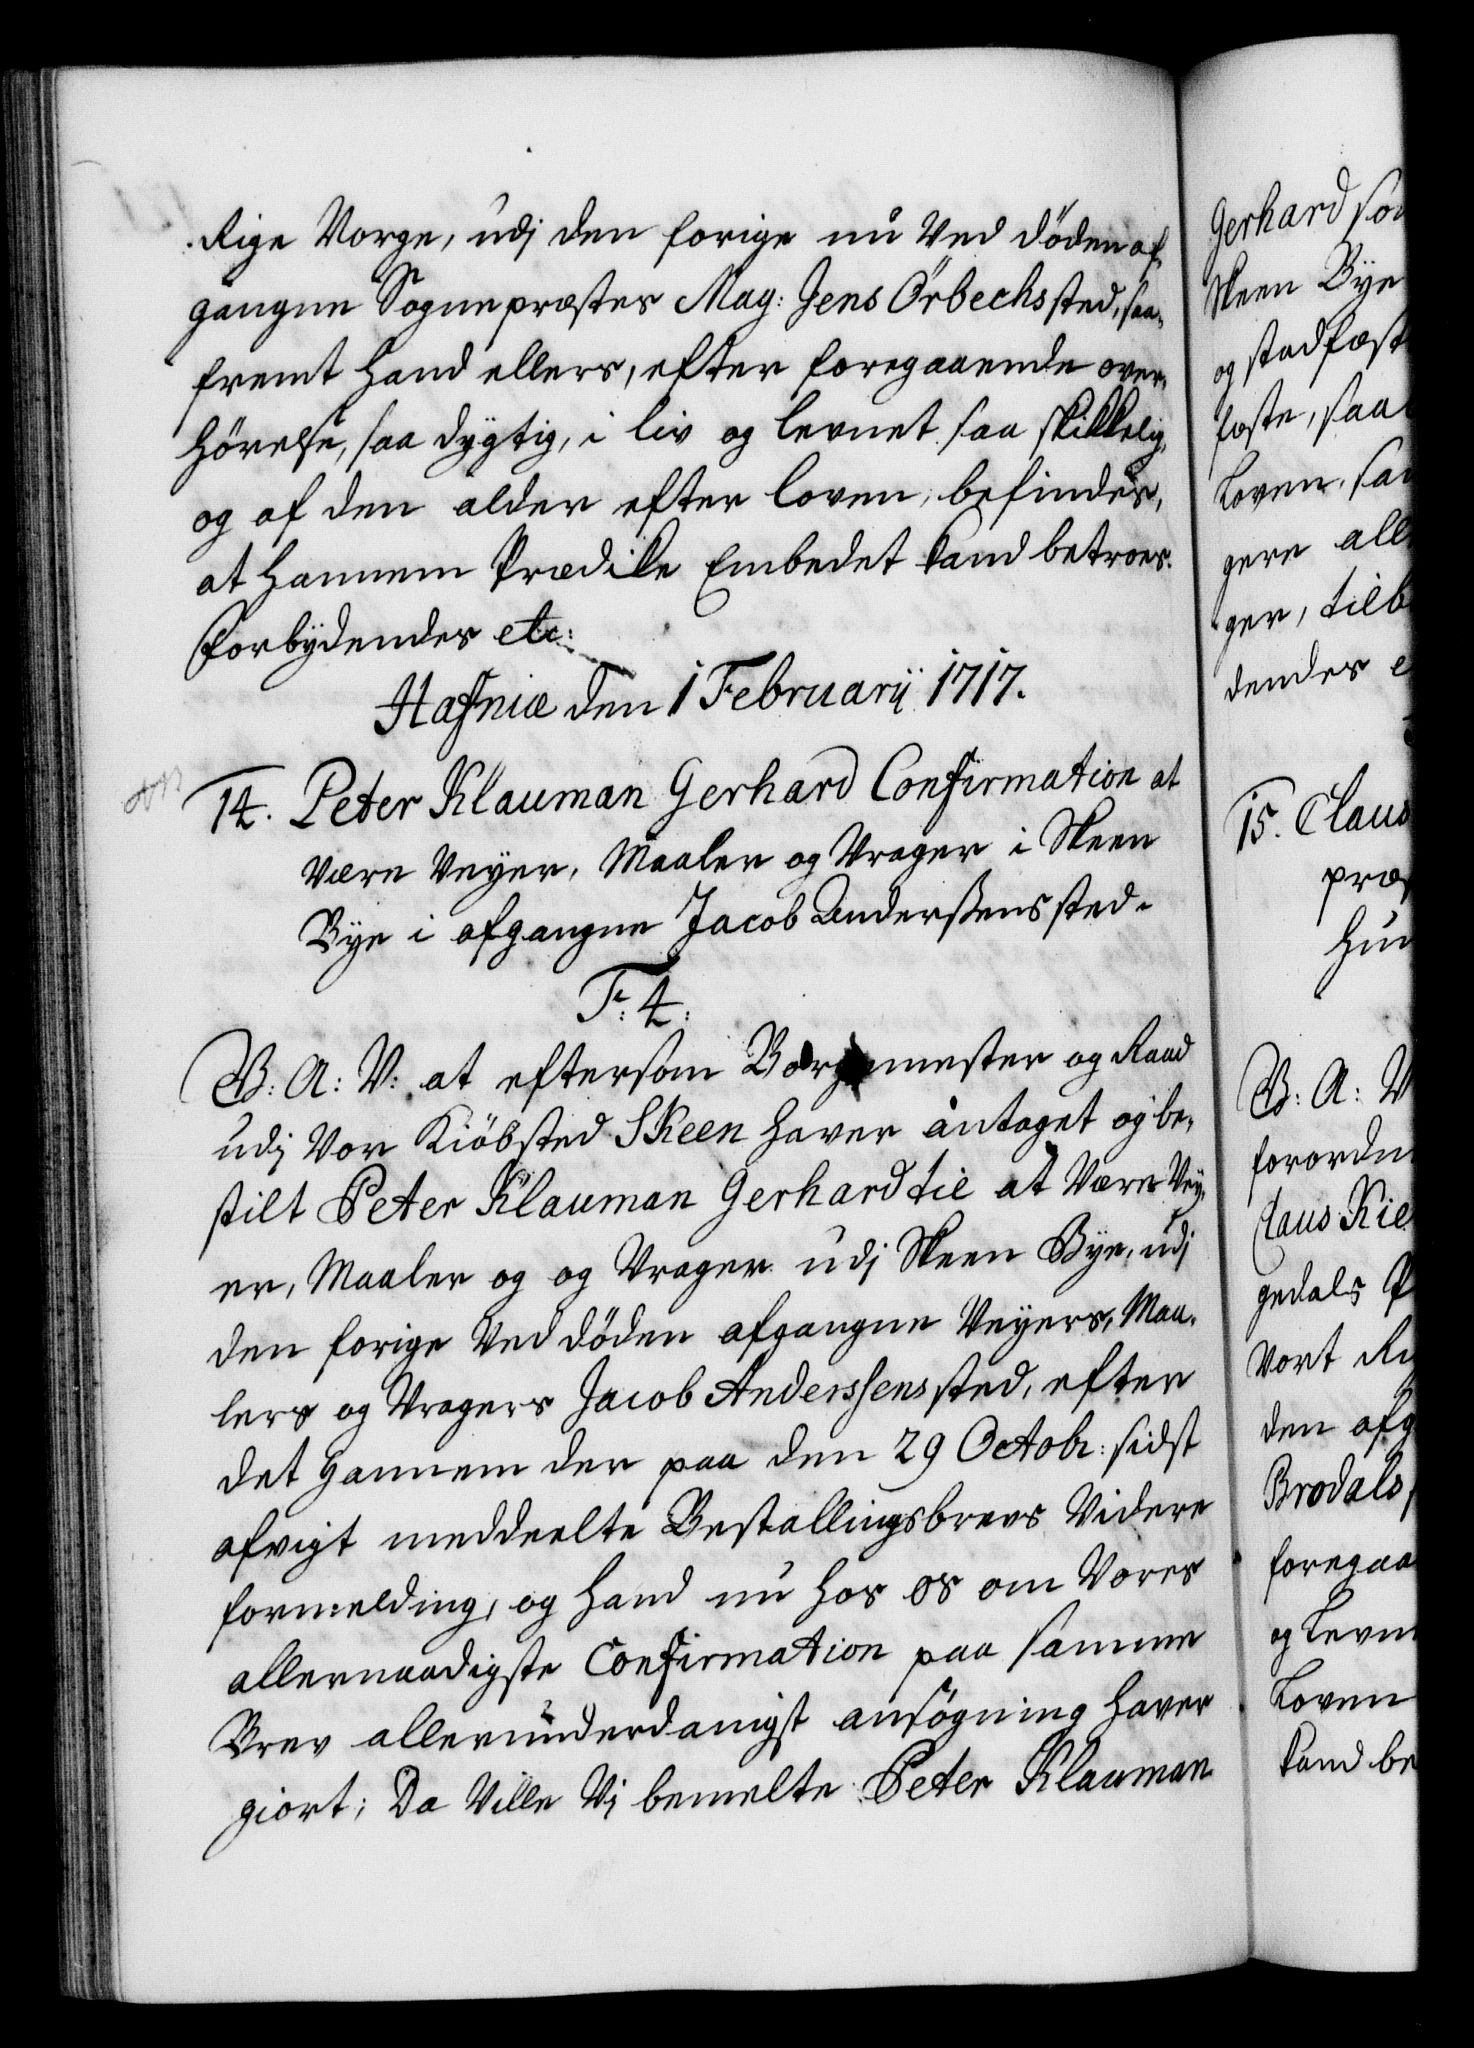 Rige Norge, udj den forige nu Ved døden af-
gangne Sognepræstes Mag: Jens Örbechs sted, saa-
fremt hand ellers, efter foregaaende over-
hörelse, saa dygtig, i liv og levnet saa skikkelig,
og af den alder efter loven, befindes,
at hannem Prædike Embedet kand betroes.
Forbydendes etc:
Hafniæ den 1 Februarij 1717.
14. Peter Klauman Gerhard Confirmation at
Være Veyer, Maaler og Vrager i Skeen
Bye i afgangne Jacob Anderssens sted.
F: 4:
W: A: V: at eftersom Borgemester og Raad
udj Vor Kiöbsted Skeen haver antaget og be-
stilt Peter Klauman Gerhard til at Være Vey-
er, Maaler og og Vrager udj Skeen Bye, udj
den forige Ved døden afgangne Veyers, Maa-
lers og Vragers Jacob Anderssens sted, efter
det hannem der paa den 29 Octobr: sidst
afvigt meddeelte Bestallingsbrevs Videre
formelding, og hand nu hos os om Vores
allernaadigste Confirmation paa samme
Brev allerunderdanigst ansøgning haver
giort; Da Ville Vj bemelte Peter Klauman
Gerhard
Skeen Bye
og stadfæst
fæste, saa
Loven, saa
gere all
ger, tilb
dendes e
15. Claus
præs
hun
W: A: V
forordne
Claus Kie
gedals P
Vort Ri
den afg
Brodals,
foregaa
og levn
Loven
kand be